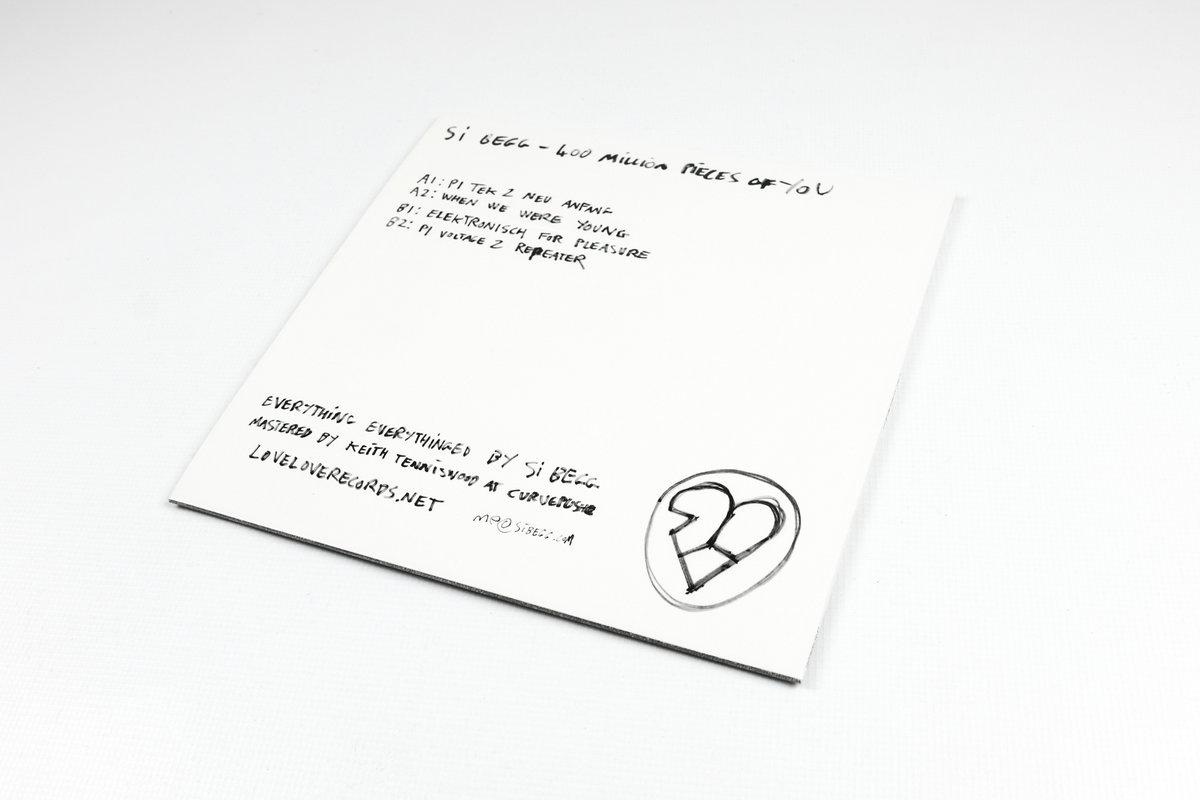 Si BEGG - 400 MiLLiON PiECES OF YOU
A1: P1 TEK 2 NEU ANFANG
A2: WHEN WE WERE YOUNG
B1: ELEKTRONISCH FOR PLEASURE
B2: P1 VOLTAGE 2 REPEATER
EVERYTHiNG EVERYTHINGED BY Si BEGG.
MASTERED BY KEiTH TENNiSWOOD AT CURVEPUSHER
LOVELOVERECORDS.NET
me@SiBEGG.COM